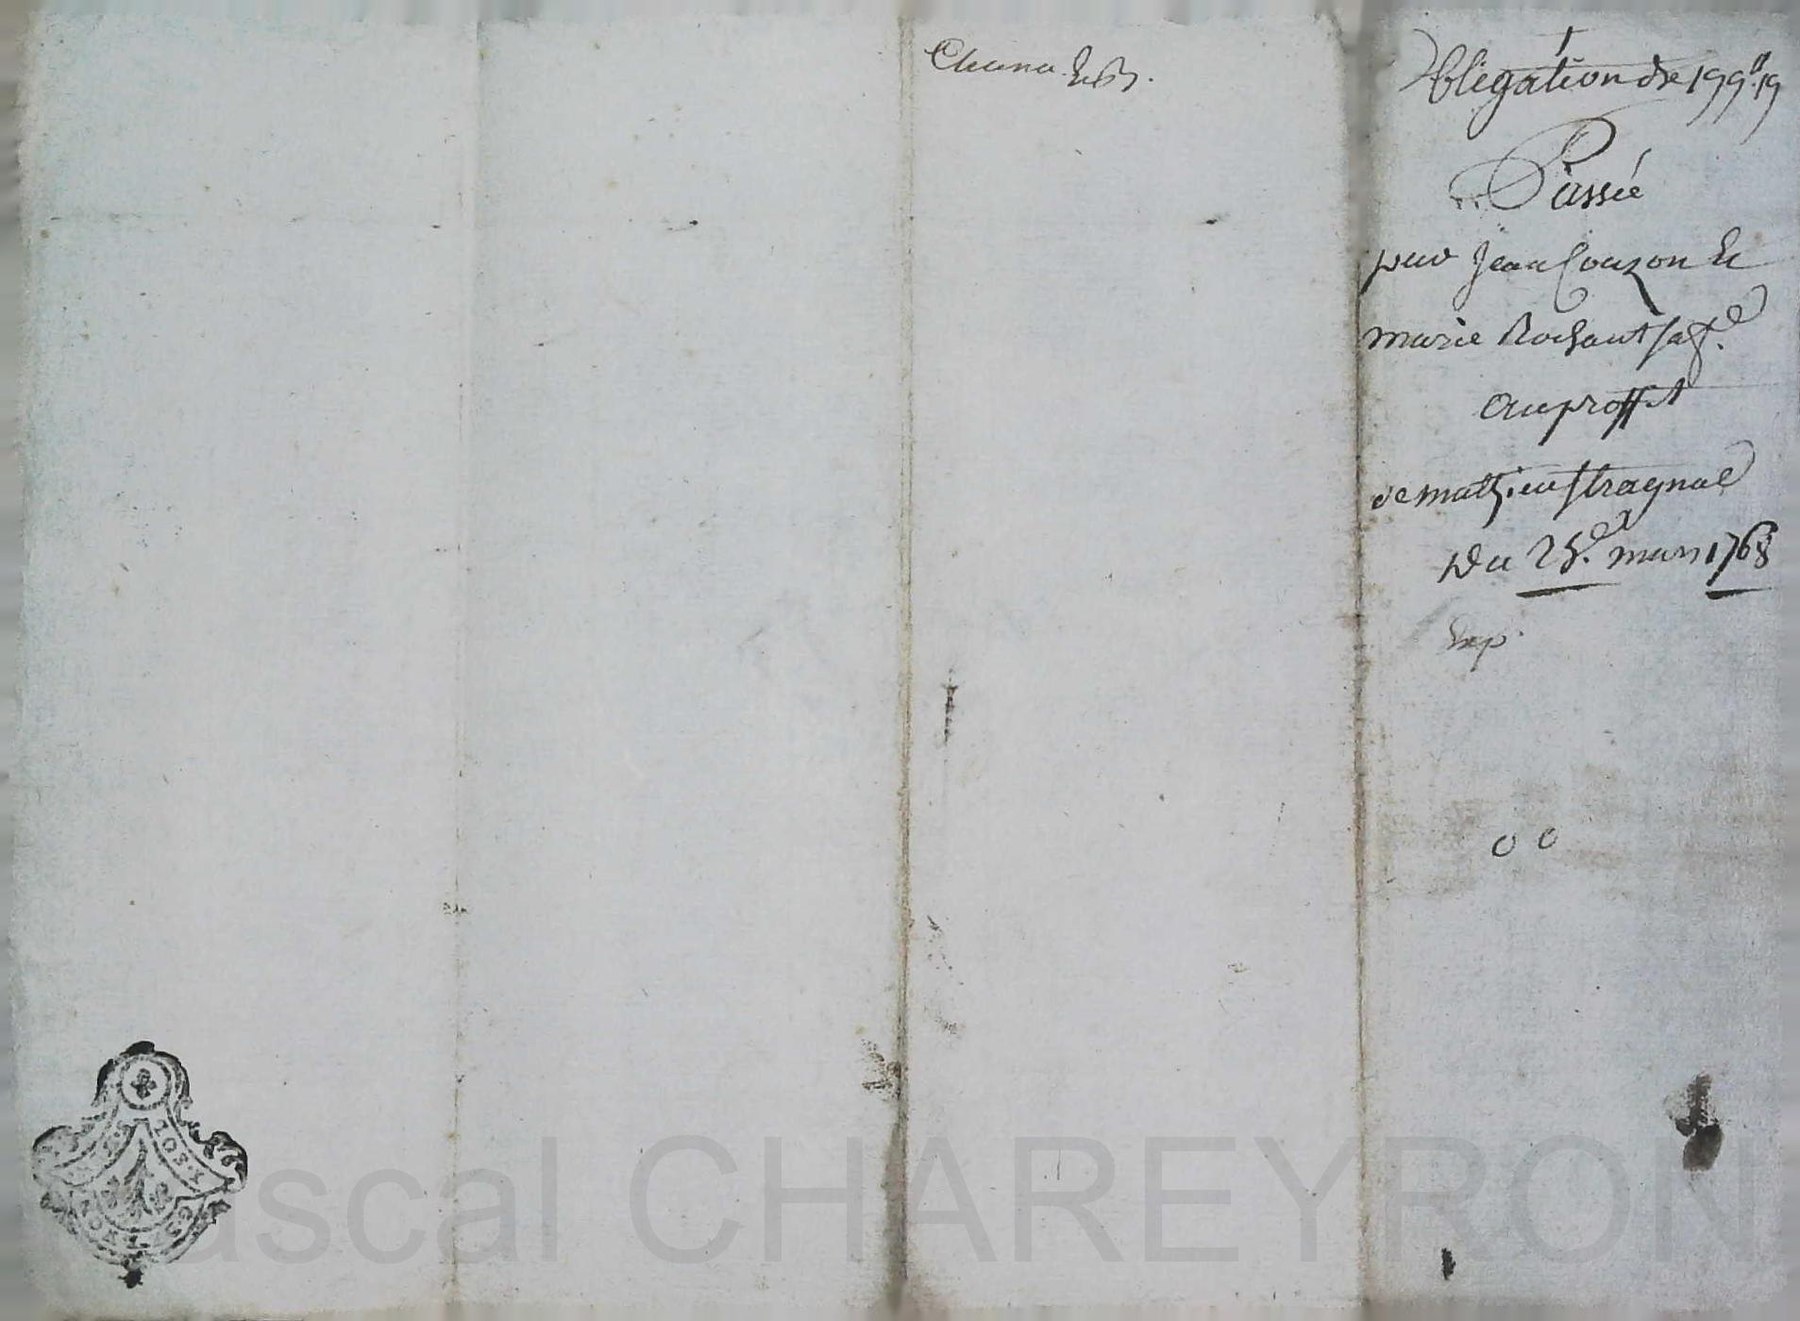 Obligation de 199ᵗᵗ 19
Passée
par Jean Couzon Et
marie Rochant sa fᵉ.
au proffit
de mathieu stragnal
Du 25ᵉ. mars 1768
Exp.
Pascal CHAREYRON